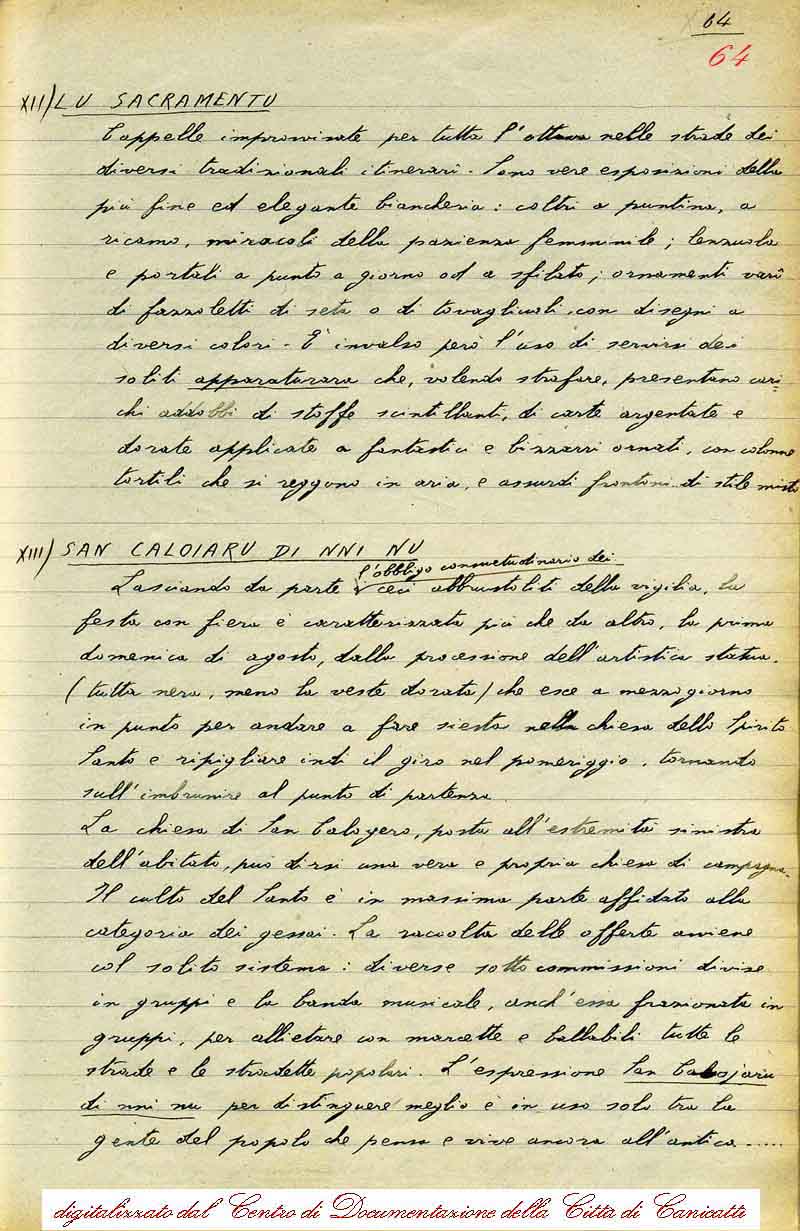 64
64
XII) LU SACRAMENTU
Cappelle improvvisate per tutta l'ottava nelle strade dei
diversi tradizionali itinerari. Sono vere esposizioni della
più fine ed elegante biancheria: coltri a puntina, a
ricamo, miracoli della pazienza femminile; lenzuola
e portali a punto a giorno od a sfilato; ornamenti varî
di fazzoletti di seta o di tovagliuoli, con disegni a
diversi colori - È invalso però l'uso di servirsi dei
soliti apparaturara che, volendo strafare, presentano cari=
chi addobbi di stoffe scintillanti, di carte argentate e
dorate applicate a fantastici e bizzarri ornati, con colonne
tortili che si reggono in aria, e assurdi frontoni di stile misto
XIII) SAN CALOIARU DI NNI NU
l'obbligo consuetudinario dei
Lasciando da parte ceci abbrustoliti della vigilia, la
festa con fiera è caratterizzata più che da altro, la prima
domenica di agosto, dalla processione dell'artistica statua.
(tutta nera, meno la veste dorata) che esce a mezzogiorno
in punto per andare a fare siesta nella chiesa dello Spirito
Santo e ripigliare indi il giro nel pomeriggio, tornando
sull'imbrunire al punto di partenza
La chiesa di San Calogero, posta all'estremità sinistra
dell'abitato, può dirsi una vera e propria chiesa di campagna.
Il culto del Santo è in massima parte affidato alla
categoria dei gessai. La raccolta delle offerte avviene
col solito sistema: diverse sotto commissioni divise
in gruppi e la banda musicale, anch'essa frazionata in
gruppi, per allietare con marcette e ballabili tutte le
strade e le stradette popolari. L'espressione San Calojaru
di nni nu per distinguere meglio è in uso solo tra la
gente del popolo che pensa e vive ancora all'antica.....
digitalizzato dal Centro di Documentazione della Città di Canicattì